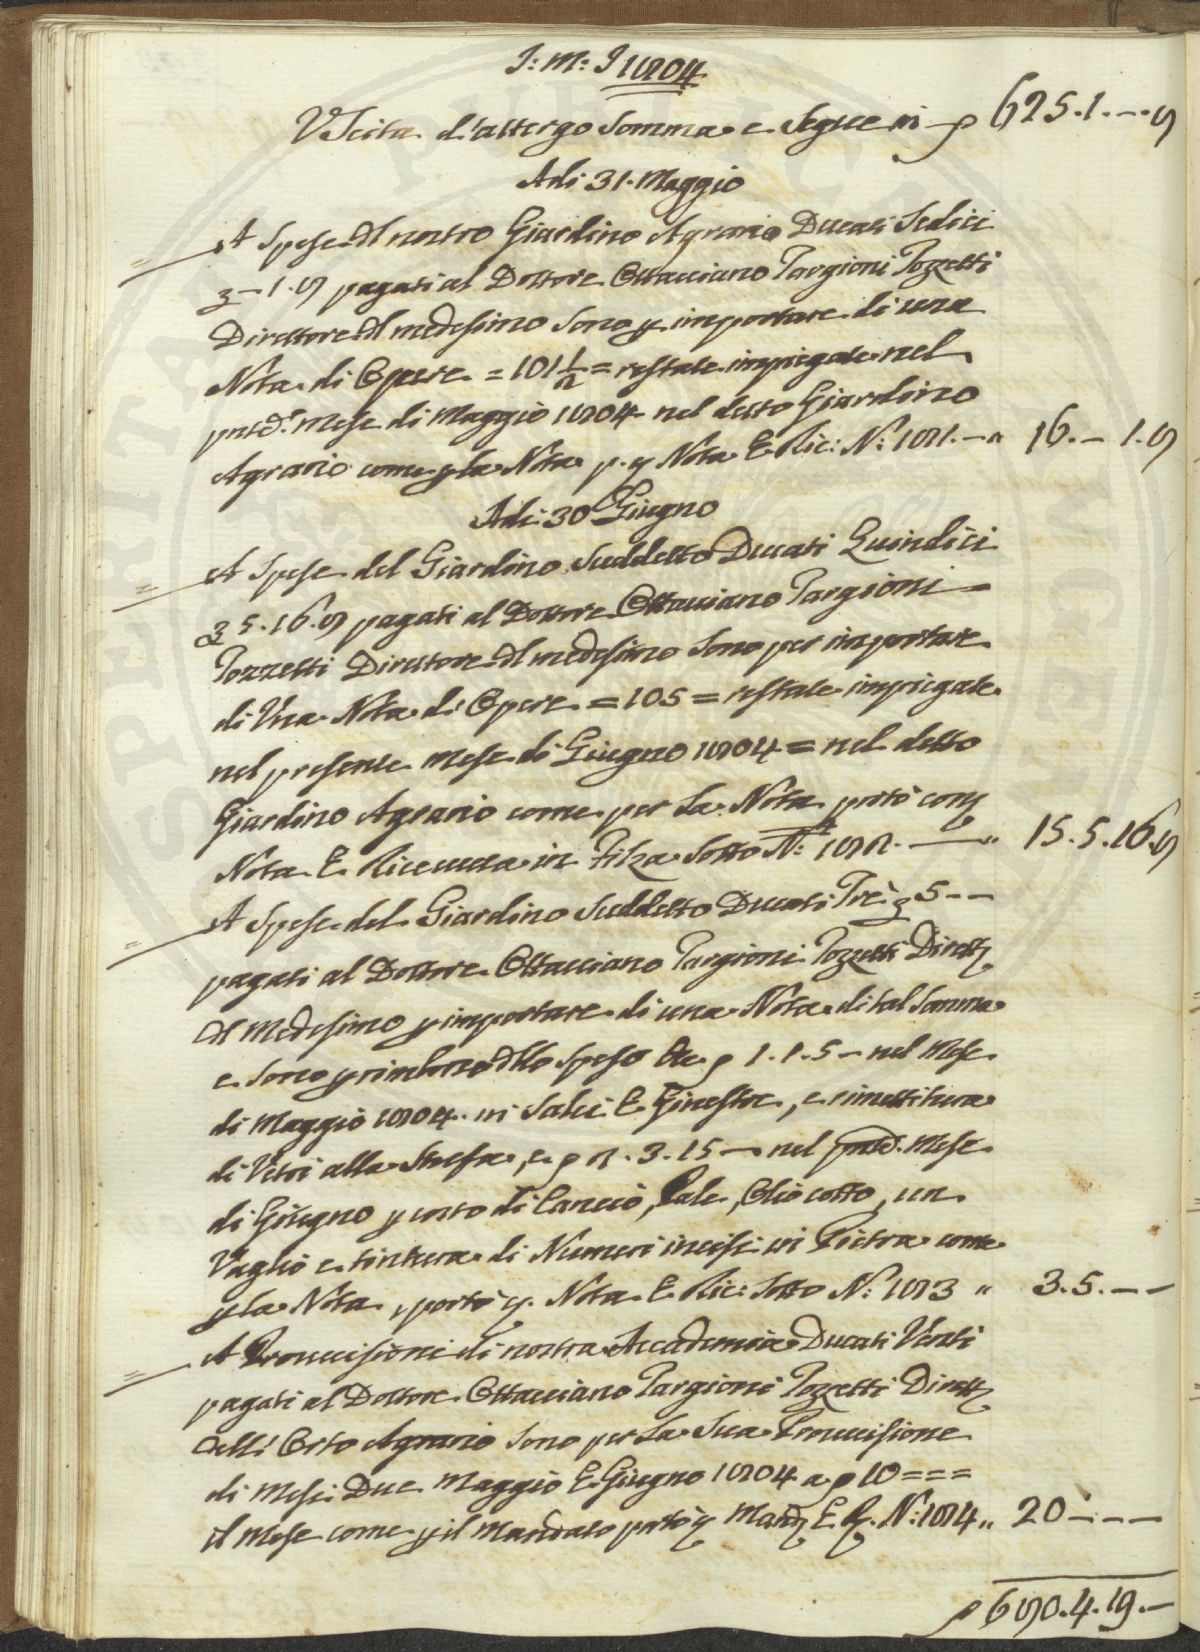 J: M: J 1804
Uscita d'attergo Somma e Segue in p 625.1.-.8
Adi 31. Maggio
A Spese dl nostro Giardino Agrario Ducati Sedici
£ - 1.8 pagati al Dottore Ottaviano Targioni Tozzetti
Direttore dl medesimo sono p importare di una
Nota di Opere = 101 1/2 = restate impiegate nel
pnte. Mese di Maggio 1804 nel detto Giardino
Agrario come p la Nota p. q Nota E Ric: N: 181. - " 16. - 1.8
Adi 30 Giugno
A Spese del Giardino Suddetto Ducati Quindici
£ 5.16.8 pagati al Dottore Ottaviano Targioni
Tozzetti Direttore dl medesimo sono per importare
di Una Nota di Opere = 105 = restate impiegate
nel presente Mese di Giugno 1804 = nel detto
Giardino Agrario come per La Nota portò con
Nota E Ricevuta in Filza Sotto N: 182. - " 15.5.16.8
A Spese del Giardino Suddetto Ducati Trè £ 5 - -
pagati al Dottore Ottaviano Targioni Tozzetti Dirett
dl Medesimo p importare di una Nota di tal Somma
e sono p rimborso dllo speso da p 1.1.5 - nel Mese
di Maggio 1804. in Salci E Ginestre, e rimettitura
di Vetri alla Stufa, e p 2.3.15 - nel pnte. Mese
di Giugno p costo di Concio, Pale, Olio cotto, un
Vaglio e tintura di Numeri incisi in Pietra come
p la Nota, portò q. Nota E Ric: Sotto N: 183 " 3.5. - -
A Provvisioni di nostra Accademia Ducati Venti
pagati al Dottore Ottaviano Targioni Tozzetti Dirett
dell' Orto Agrario sono per La Sua Provvisione
di Mesi Due Maggio E Giugno 1804 a p 10 = = =
il Mese come p il Mandato portò q Mand E R. N: 184 " 20 - - -
p 680.4.19. -